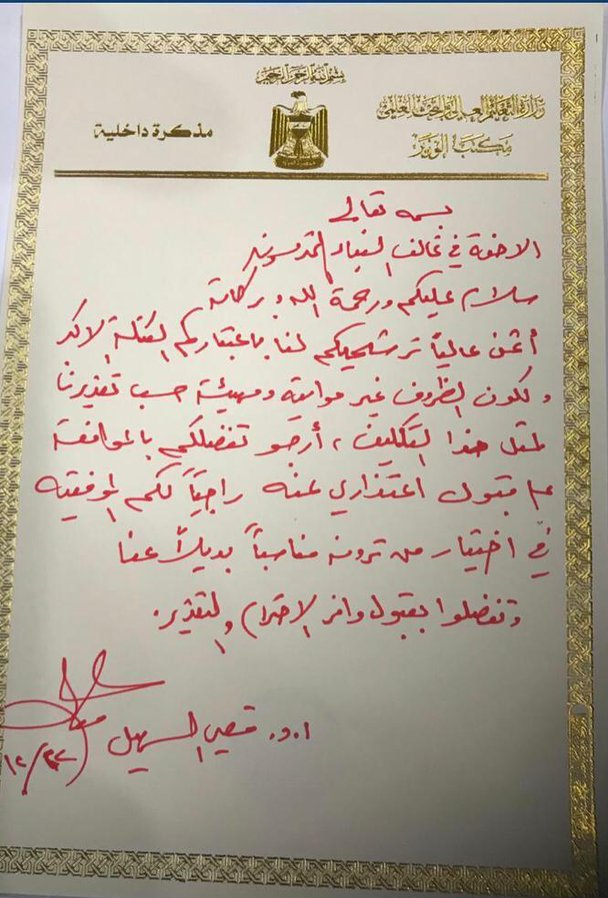 بسم الله الرحمن الرحيم
وزارة التعليم العالي والبحث العلمي
مكتب الوزير
مذكرة داخلية
بسمه تعالى
الاخوة في تحالف البناء المحترمون
سلام عليكم ورحمة الله وبركاته
أثمن عالياً ترشيحكم لنا باعتباركم الكتلة الاكبر
ولكون الظروف غير مواتية ومهيئة حسب تقديرنا
لمثل هذا التكليف، أرجو تفضلكم بالموافقة
على قبول اعتذاري عنه راجياً لكم الموفقية
في اختيار من ترونه مناسباً بديلاً عنا
وتفضلوا بقبول وافر الاحترام والتقدير.
ا.د. قصي السهيل
١٢/٢٢